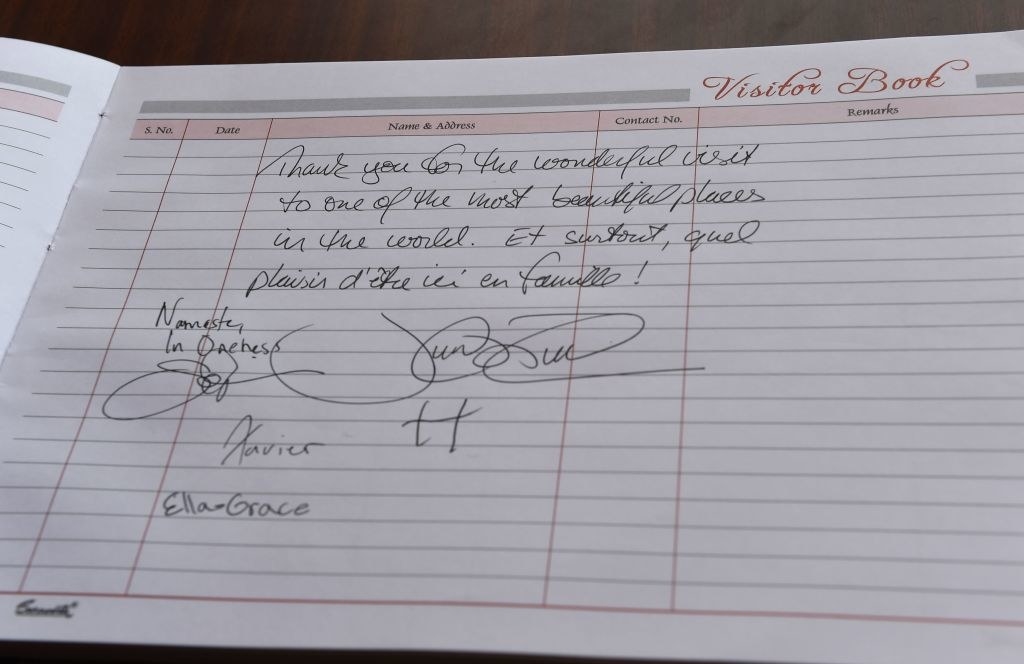 Visitor Book
S. No. Date Name & Address Contact No. Remarks
Thank you for the wonderful visit
to one of the most beautiful places
in the world. Et surtout, quel
plaisir d'être ici en famille!
Namaste,
In Oneness
H
Xavier
Ella-Grace